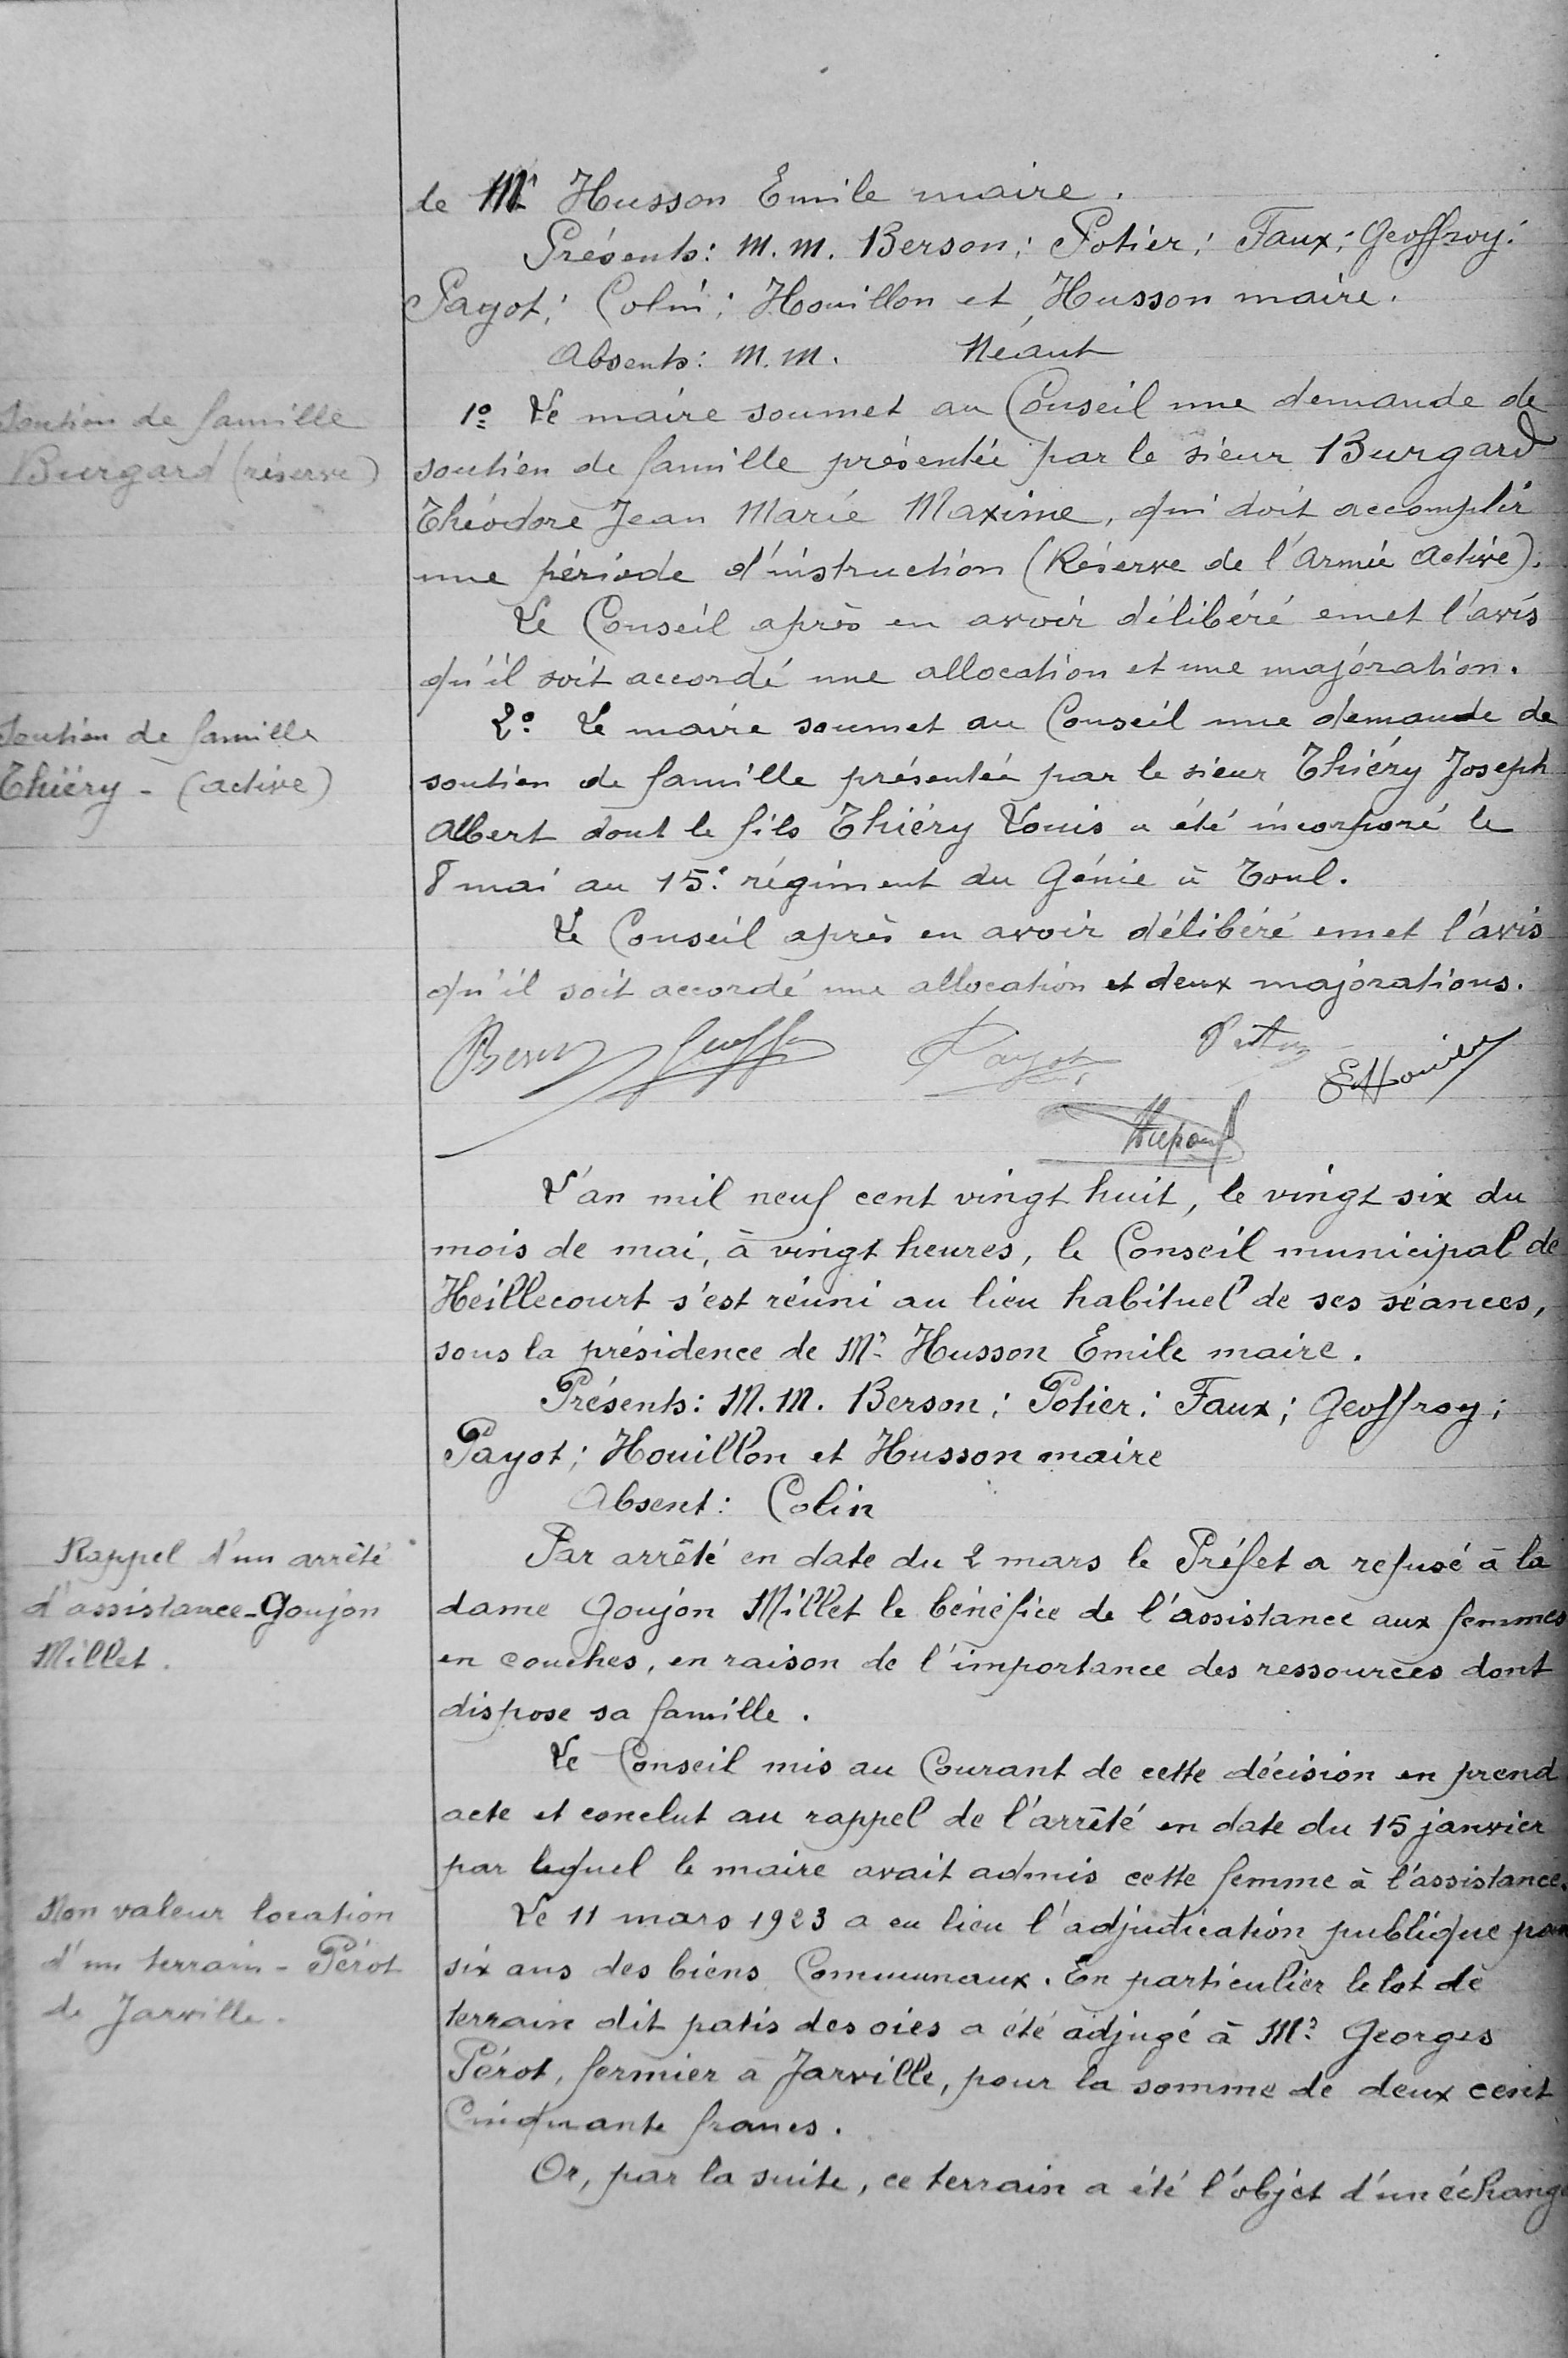 de Mr Husson Emile maire.
Présents: M.M. Berson; Potier; Faux; Geoffroy;
Payot; Colin; Houillon et Husson maire.
Absents: M.M. Néant
Soutien de famille
Burgard (réserve)
1º Le maire soumet au Conseil une demande de
soutien de famille présentée par le sieur Burgard
Théodore Jean Marie Maxime, qui doit accomplir
une période d'instruction (Réserve de l'Armée Active).
Le Conseil après en avoir délibéré emet l'avis
qu'il soit accordé une allocation et une majoration.
Soutien de famille
Thiéry - (active)
2º Le maire soumet au Conseil une demande de
soutien de famille présentée par le sieur Thiéry Joseph
Albert dont le fils Thiéry Louis a été incorporé le
8 mai au 15e régiment du Génie à Toul.
Le Conseil après en avoir délibéré emet l'avis
qu'il soit accordé une allocation et deux majorations.
Payot
EHouillon
L'an mil neuf cent vingt huit, le vingt six du
mois de mai, à vingt heures, le Conseil municipal de
Heillecourt s'est réuni au lieu habituel de ses séances,
sous la présidence de Mr Husson Emile maire.
Présents: M.M. Berson; Potier; Faux; Geoffroy;
Payot; Houillon et Husson maire
Absent: Colin
Rappel d'un arrêté
d'assistance-Goujon
Millet.
Par arrêté en date du 2 mars le Préfet a refusé à la
dame Goujon Millet le bénéfice de l'assistance aux femmes
en couches, en raison de l'importance des ressources dont
dispose sa famille.
Le Conseil mis au Courant de cette décision en prend
acte et conclut au rappel de l'arrêté en date du 15 janvier
par lequel le maire avait admis cette femme à l'assistance.
Non valeur location
d'un terrain - Pérot
de Jarville.
Le 11 mars 1923 a eu lieu l'adjudication publique pour
six ans des biens Communaux. En particulier le lot de
terrain dit patis des oies a été adjugé à Mr Georges
Pérot, fermier à Jarville, pour la somme de deux cent
Cinquante francs.
Or, par la suite, ce terrain a été l'objet d'un échange